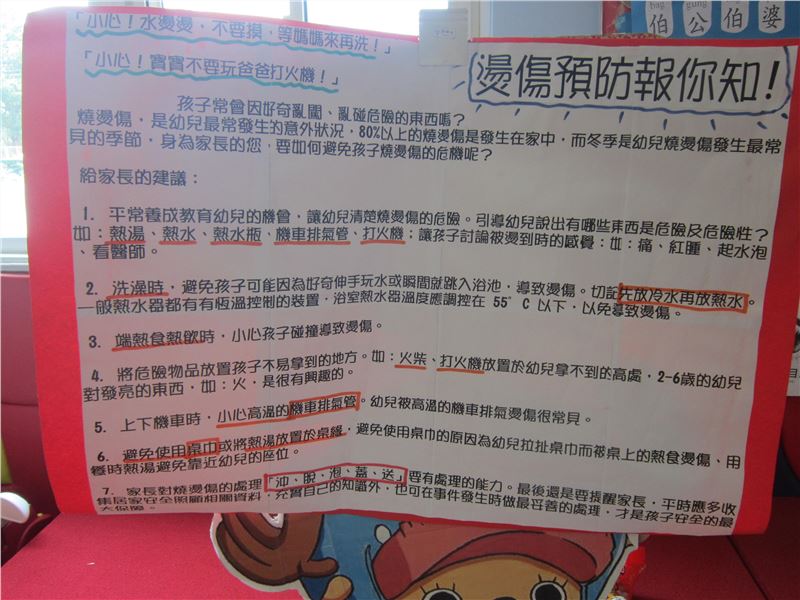 「小心！水燙燙，不要摸，等媽媽來再洗！」
「小心！寶寶不要玩爸爸打火機！」
燙傷預防報你知！
伯公伯婆
孩子常會因好奇亂闖、亂碰危險的東西嗎？
燒燙傷，是幼兒最常發生的意外狀況，80%以上的燒燙傷是發生在家中，而冬季是幼兒燒燙傷發生最常
見的季節，身為家長的您，要如何避免孩子燒燙傷的危機呢？
給家長的建議：
1. 平常養成教育幼兒的機會，讓幼兒清楚燒燙傷的危險。引導幼兒說出有哪些東西是危險及危險性？
如：熱湯、熱水、熱水瓶、機車排氣管、打火機；讓孩子討論被燙到時的感覺：如：痛、紅腫、起水泡
、看醫師。
2. 洗澡時，避免孩子可能因為好奇伸手玩水或瞬間就跳入浴池，導致燙傷。切記先放冷水再放熱水。
一般熱水器都有有恆溫控制的裝置，浴室熱水器溫度應調控在 55° C 以下，以免導致燙傷。
3. 端熱食熱飲時，小心孩子碰撞導致燙傷。
4. 將危險物品放置孩子不易拿到的地方。如：火柴、打火機放置於幼兒拿不到的高處，2-6歲的幼兒
對發亮的東西，如：火，是很有興趣的。
5. 上下機車時，小心高溫的機車排氣管。幼兒被高溫的機車排氣燙傷很常見。
6. 避免使用桌巾或將熱湯放置於桌緣，避免使用桌巾的原因為幼兒拉扯桌巾而被桌上的熱食燙傷、用
餐時熱湯避免靠近幼兒的座位。
7. 家長對燒燙傷的處理「沖、脫、泡、蓋、送」要有處理的能力。最後還是要提醒家長，平時應多收
集居家安全照顧相關資料，充實自己的知識外，也可在事件發生時做最妥善的處理，才是孩子安全的最
大保障。